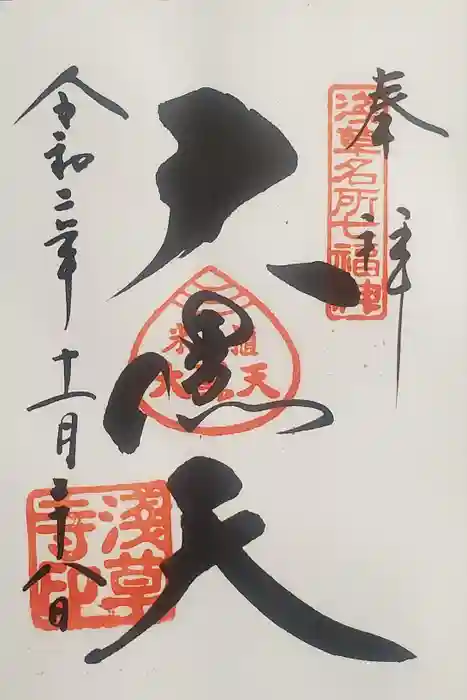 奉拝
浅草名所七福神
大黒天
令和二年十一月二十八日
浅草
寺印